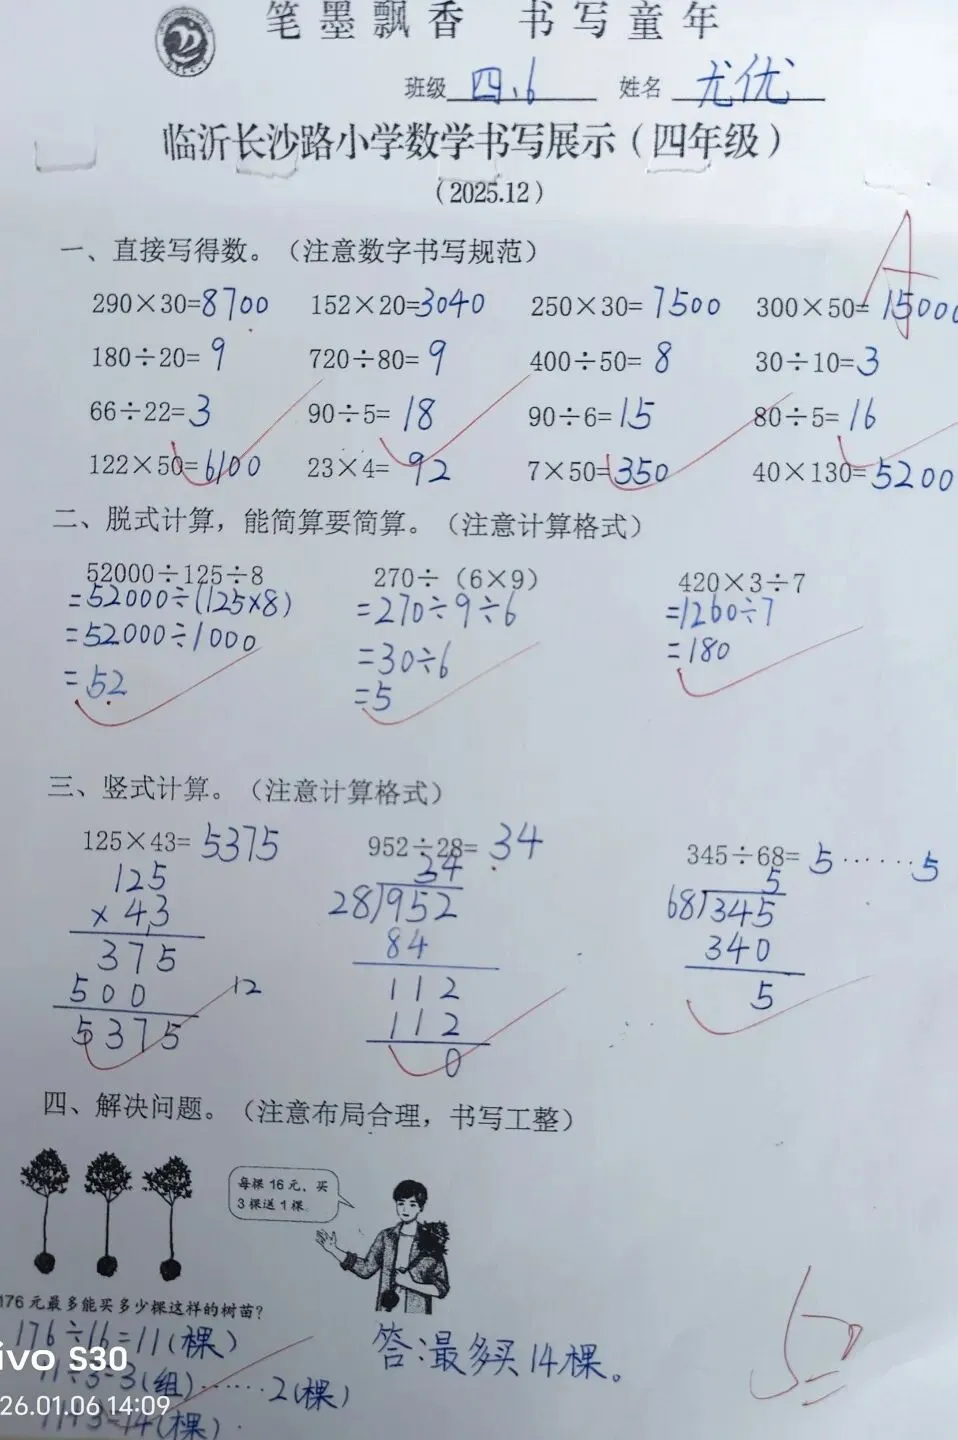 笔墨飘香 书写童年
班级 四、6 姓名 尤优
临沂长沙路小学数学书写展示（四年级）
（2025.12）
A
一、直接写得数。（注意数字书写规范）
290×30=8700 152×20=3040 250×30=7500 300×50=15000
180÷20=9 720÷80=9 400÷50=8 30÷10=3
66÷22=3 90÷5=18 90÷6=15 80÷5=16
122×50=6100 23×4=92 7×50=350 40×130=5200
二、脱式计算，能简算要简算。（注意计算格式）
52000÷125÷8 270÷（6×9） 420×3÷7
=52000÷(125×8) =270÷9÷6 =1260÷7
=52000÷1000 =30÷6 =180
=52 =5
三、竖式计算。（注意计算格式）
125×43=5375 952÷28=34 345÷68=5……5
125 34 5
×43 28)952 68)345
375 84 340
500 12 112 5
5375 112
0
四、解决问题。（注意布局合理，书写工整）
每棵16元，买
3棵送1棵。
176元最多能买多少棵这样的树苗？
176÷16=11(棵)
11÷3=3(组)……2(棵)
11+3=14(棵)
答：最多买14棵。
vivo S30
2026.01.06 14:09